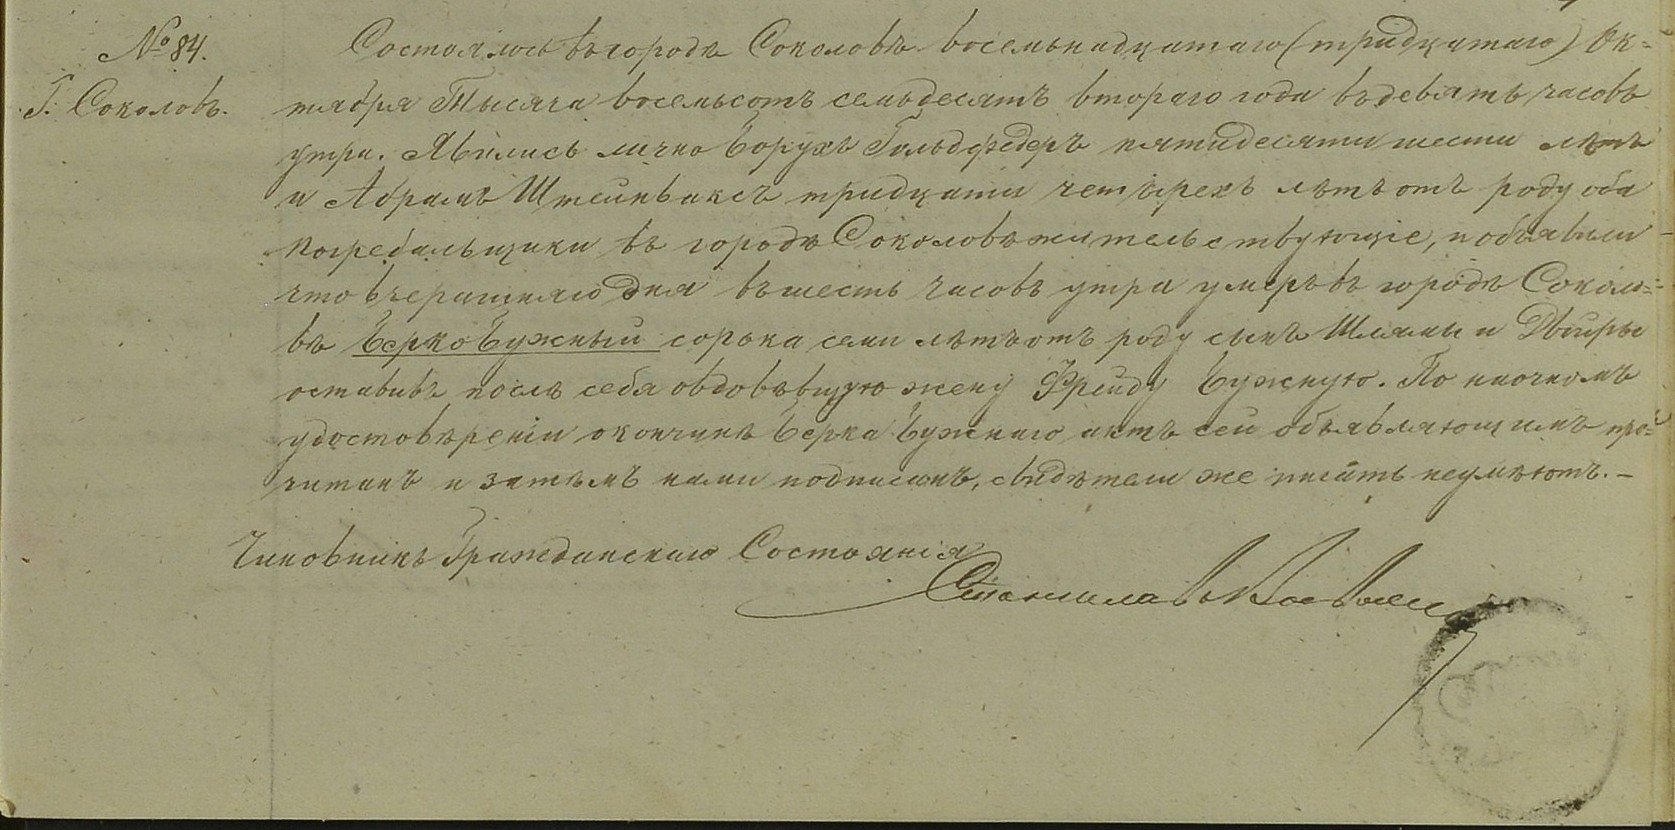 № 84.
Г. Соколовъ.
Состоялось въ городѣ Соколовѣ восемьнадцатаго (тридцатаго) Ок=
тября Тысяча восемьсотъ семьдесятъ втораго года въ девять часовъ
утра. Явились лично Борухъ Гольдфедеръ пятидесяти шести лѣтъ
и Абрамъ Штейнваксъ тридцати четырехъ лѣтъ отъ роду оба
погребальщики въ городѣ Соколовѣ жительствующіе, и объявили
что вчерашняго дня въ шесть часовъ утра умеръ въ городѣ Соколо=
вѣ Берко Бужный сорока семи лѣтъ отъ роду сынъ Шлямы и Двойры
оставивъ послѣ себя овдовѣвшую жену Фрейду Бужную. По наочномъ
удостовѣреніи о кончинѣ Берка Бужнаго актъ сей объявляющимъ про=
читанъ и затѣмъ нами подписанъ, свидѣтели же писать неумѣютъ. —
Чиновникъ Гражданскаго Состоянія